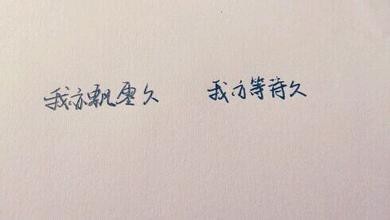 我亦飘零久 我亦等待久